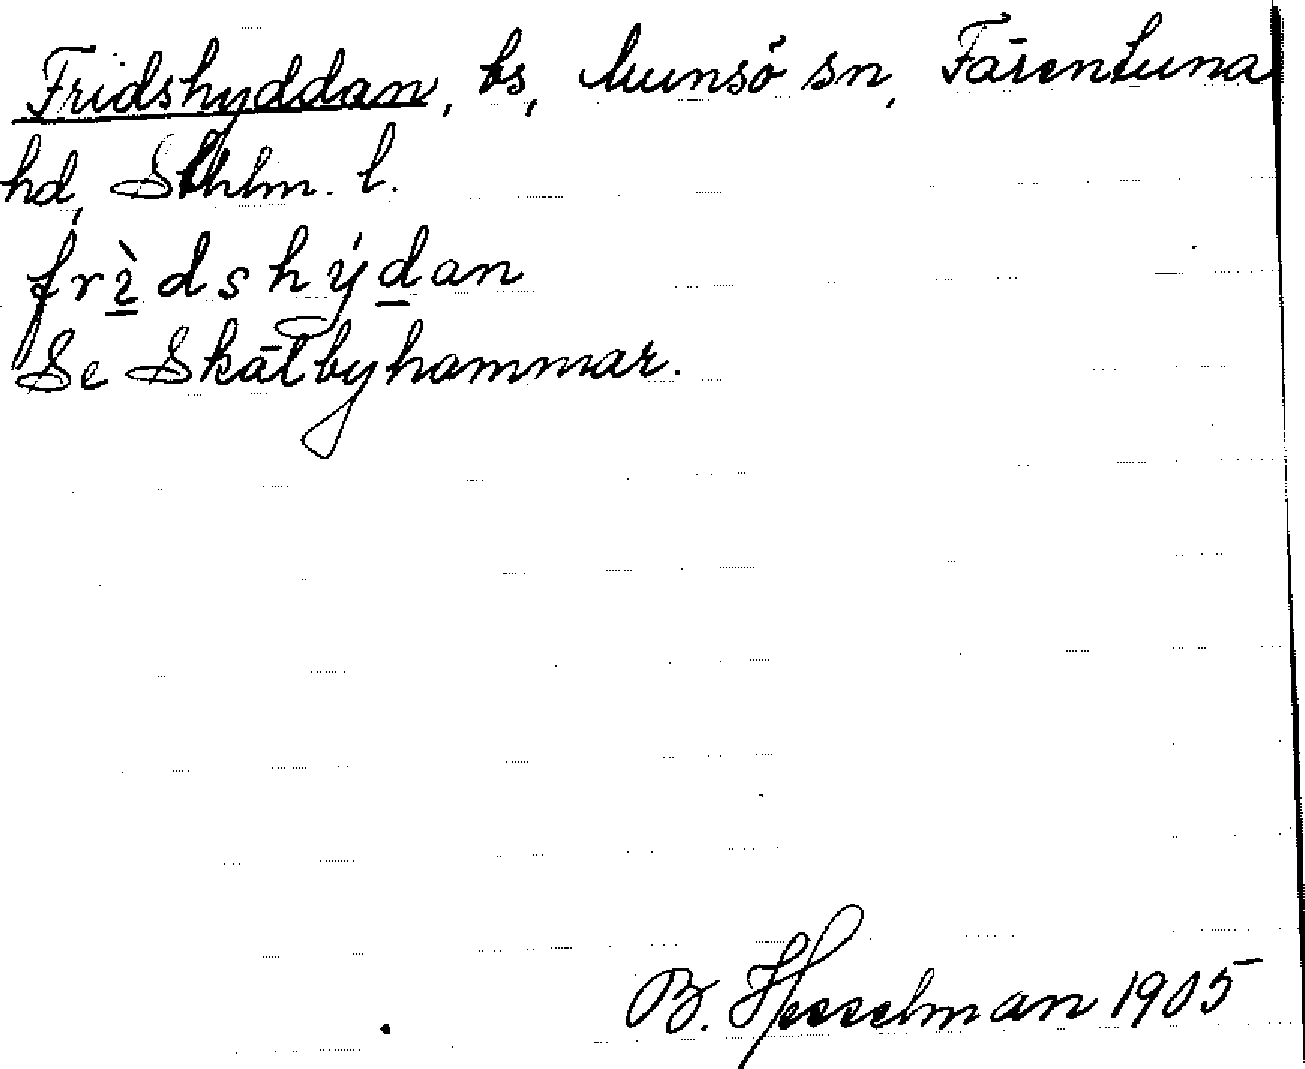 Fridshyddan, bs, Munsö sn, Färentuna
hd, Sthlm. l.
frìdshýdan
Se Skälbyhammar.
B. Hesselman 1905